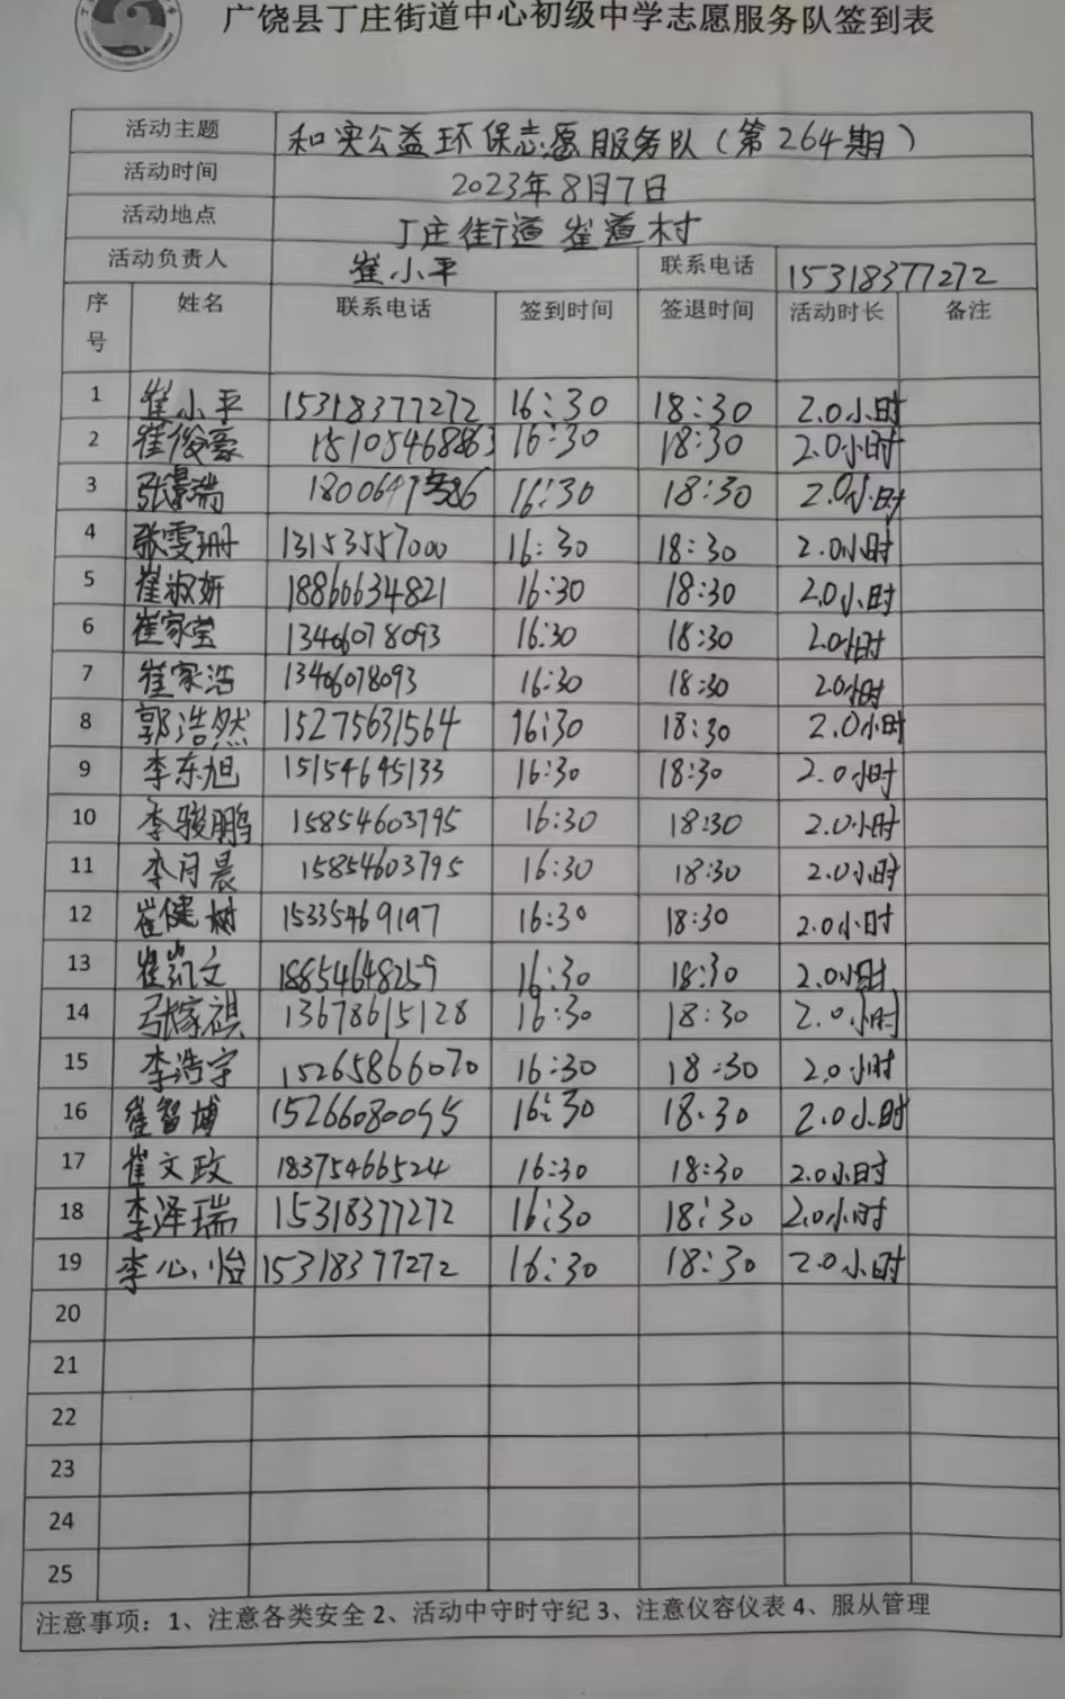 广饶县丁庄街道中心初级中学志愿服务队签到表
活动主题 和实公益环保志愿服务队(第264期)
活动时间 2023年8月7日
活动地点 丁庄街道崔道村
活动负责人 崔小平 联系电话 15318377272
序号 姓名 联系电话 签到时间 签退时间 活动时长 备注
1 崔小平 15318377272 16:30 18:30 2.0小时
2 崔俊豪 15105468863 16:30 18:30 2.0小时
3 张景瑞 16:30 18:30 2.0小时
4 张雯珊 13153557000 16:30 18:30 2.0小时
5 崔淑妍 18866634821 16:30 18:30 2.0小时
6 崔家莹 13406078093 16:30 18:30 2.0小时
7 崔家浩 13406078093 16:30 18:30 2.0小时
8 郭浩然 15275631564 16:30 18:30 2.0小时
9 李东旭 15154645133 16:30 18:30 2.0小时
10 李骏鹏 15854603795 16:30 18:30 2.0小时
11 李月晨 15854603795 16:30 18:30 2.0小时
12 崔健树 15335469197 16:30 18:30 2.0小时
13 崔凯文 18854648259 16:30 18:30 2.0小时
14 张家祺 13678615128 16:30 18:30 2.0小时
15 李浩宇 15265866070 16:30 18:30 2.0小时
16 崔智博 15266080095 16:30 18:30 2.0小时
17 崔文政 18375466524 16:30 18:30 2.0小时
18 李泽瑞 15318377272 16:30 18:30 2.0小时
19 李心怡 15318377272 16:30 18:30 2.0小时
20
21
22
23
24
25
注意事项:1、注意各类安全 2、活动中守时守纪 3、注意仪容仪表 4、服从管理